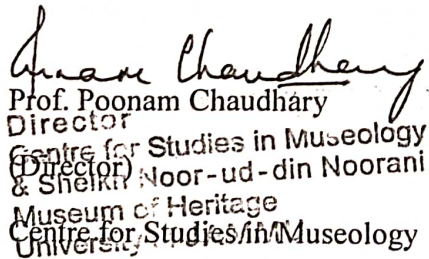 Poonam Chaudhary
Prof. Poonam Chaudhary
Director
Centre for Studies in Museology
(Director)
& Sheikh Noor-ud-din Noorani
Museum of Heritage
Centre for Studies in Museology
University